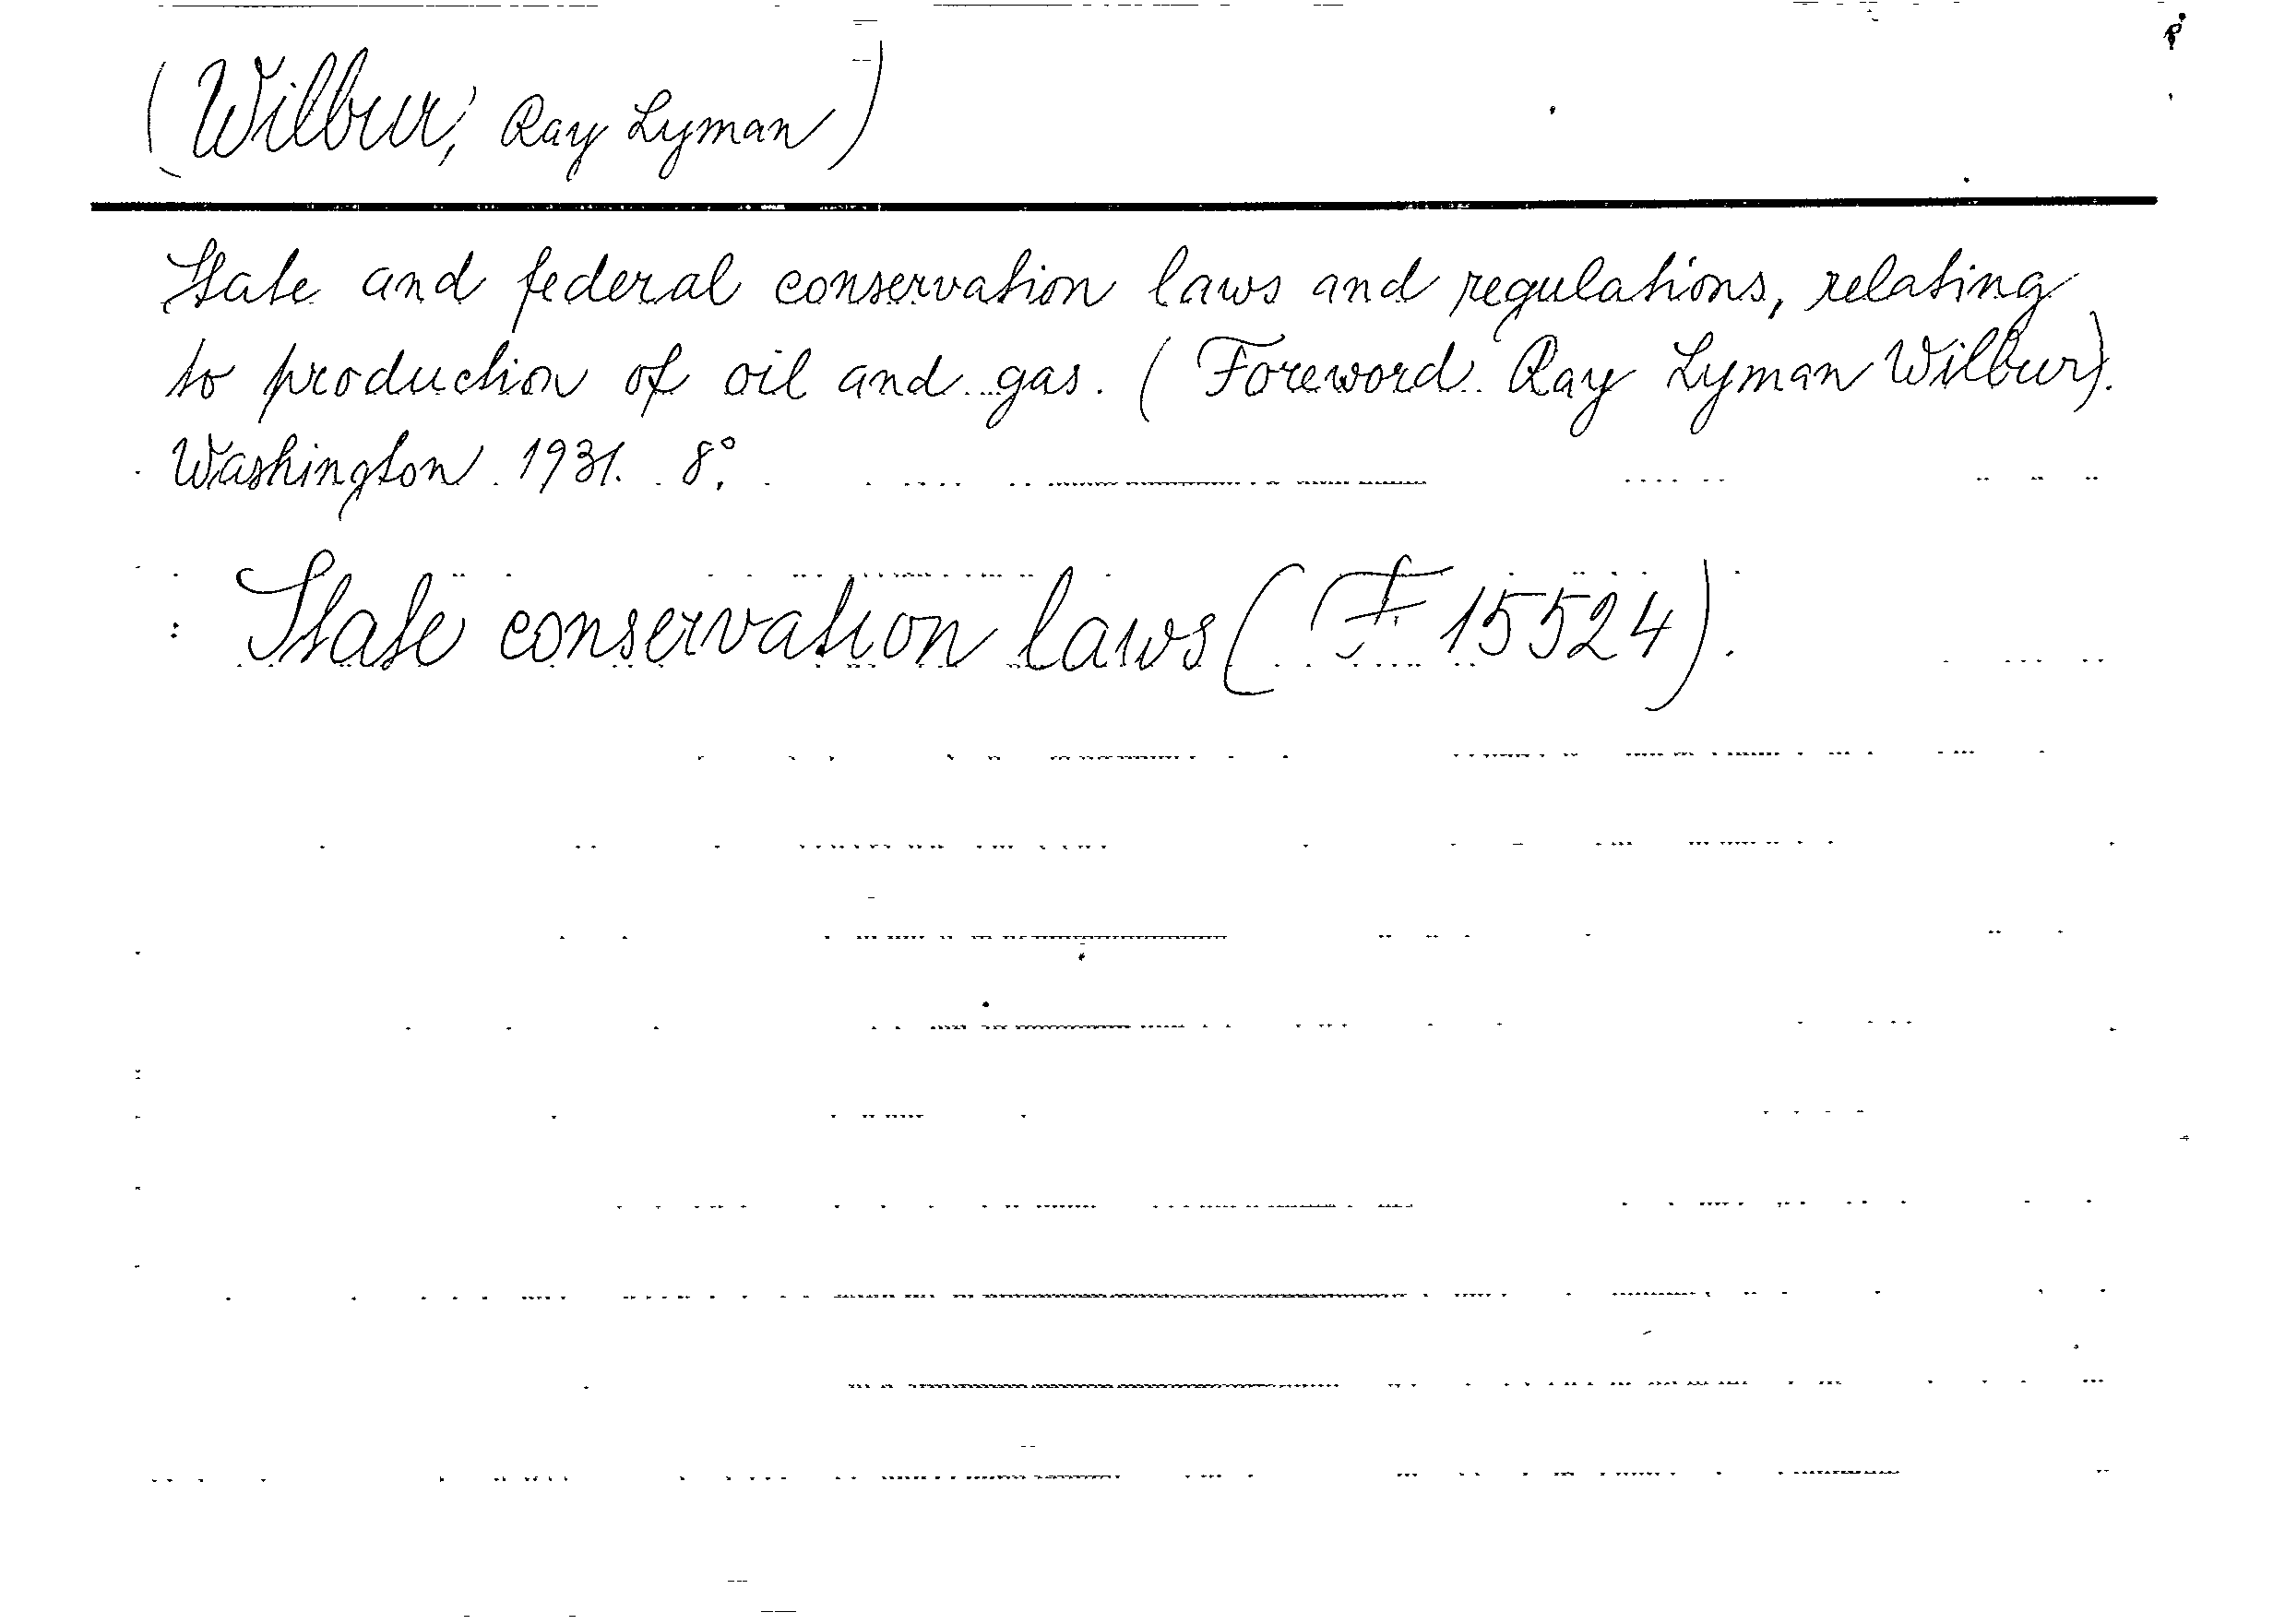 (Wilbur, Ray Lyman)
State and federal conservation laws and regulations, relating
to production of oil and gas. (Foreword Ray Lyman Wilbur).
Washington 1931. 8°.
: State conservation laws (F 15524).